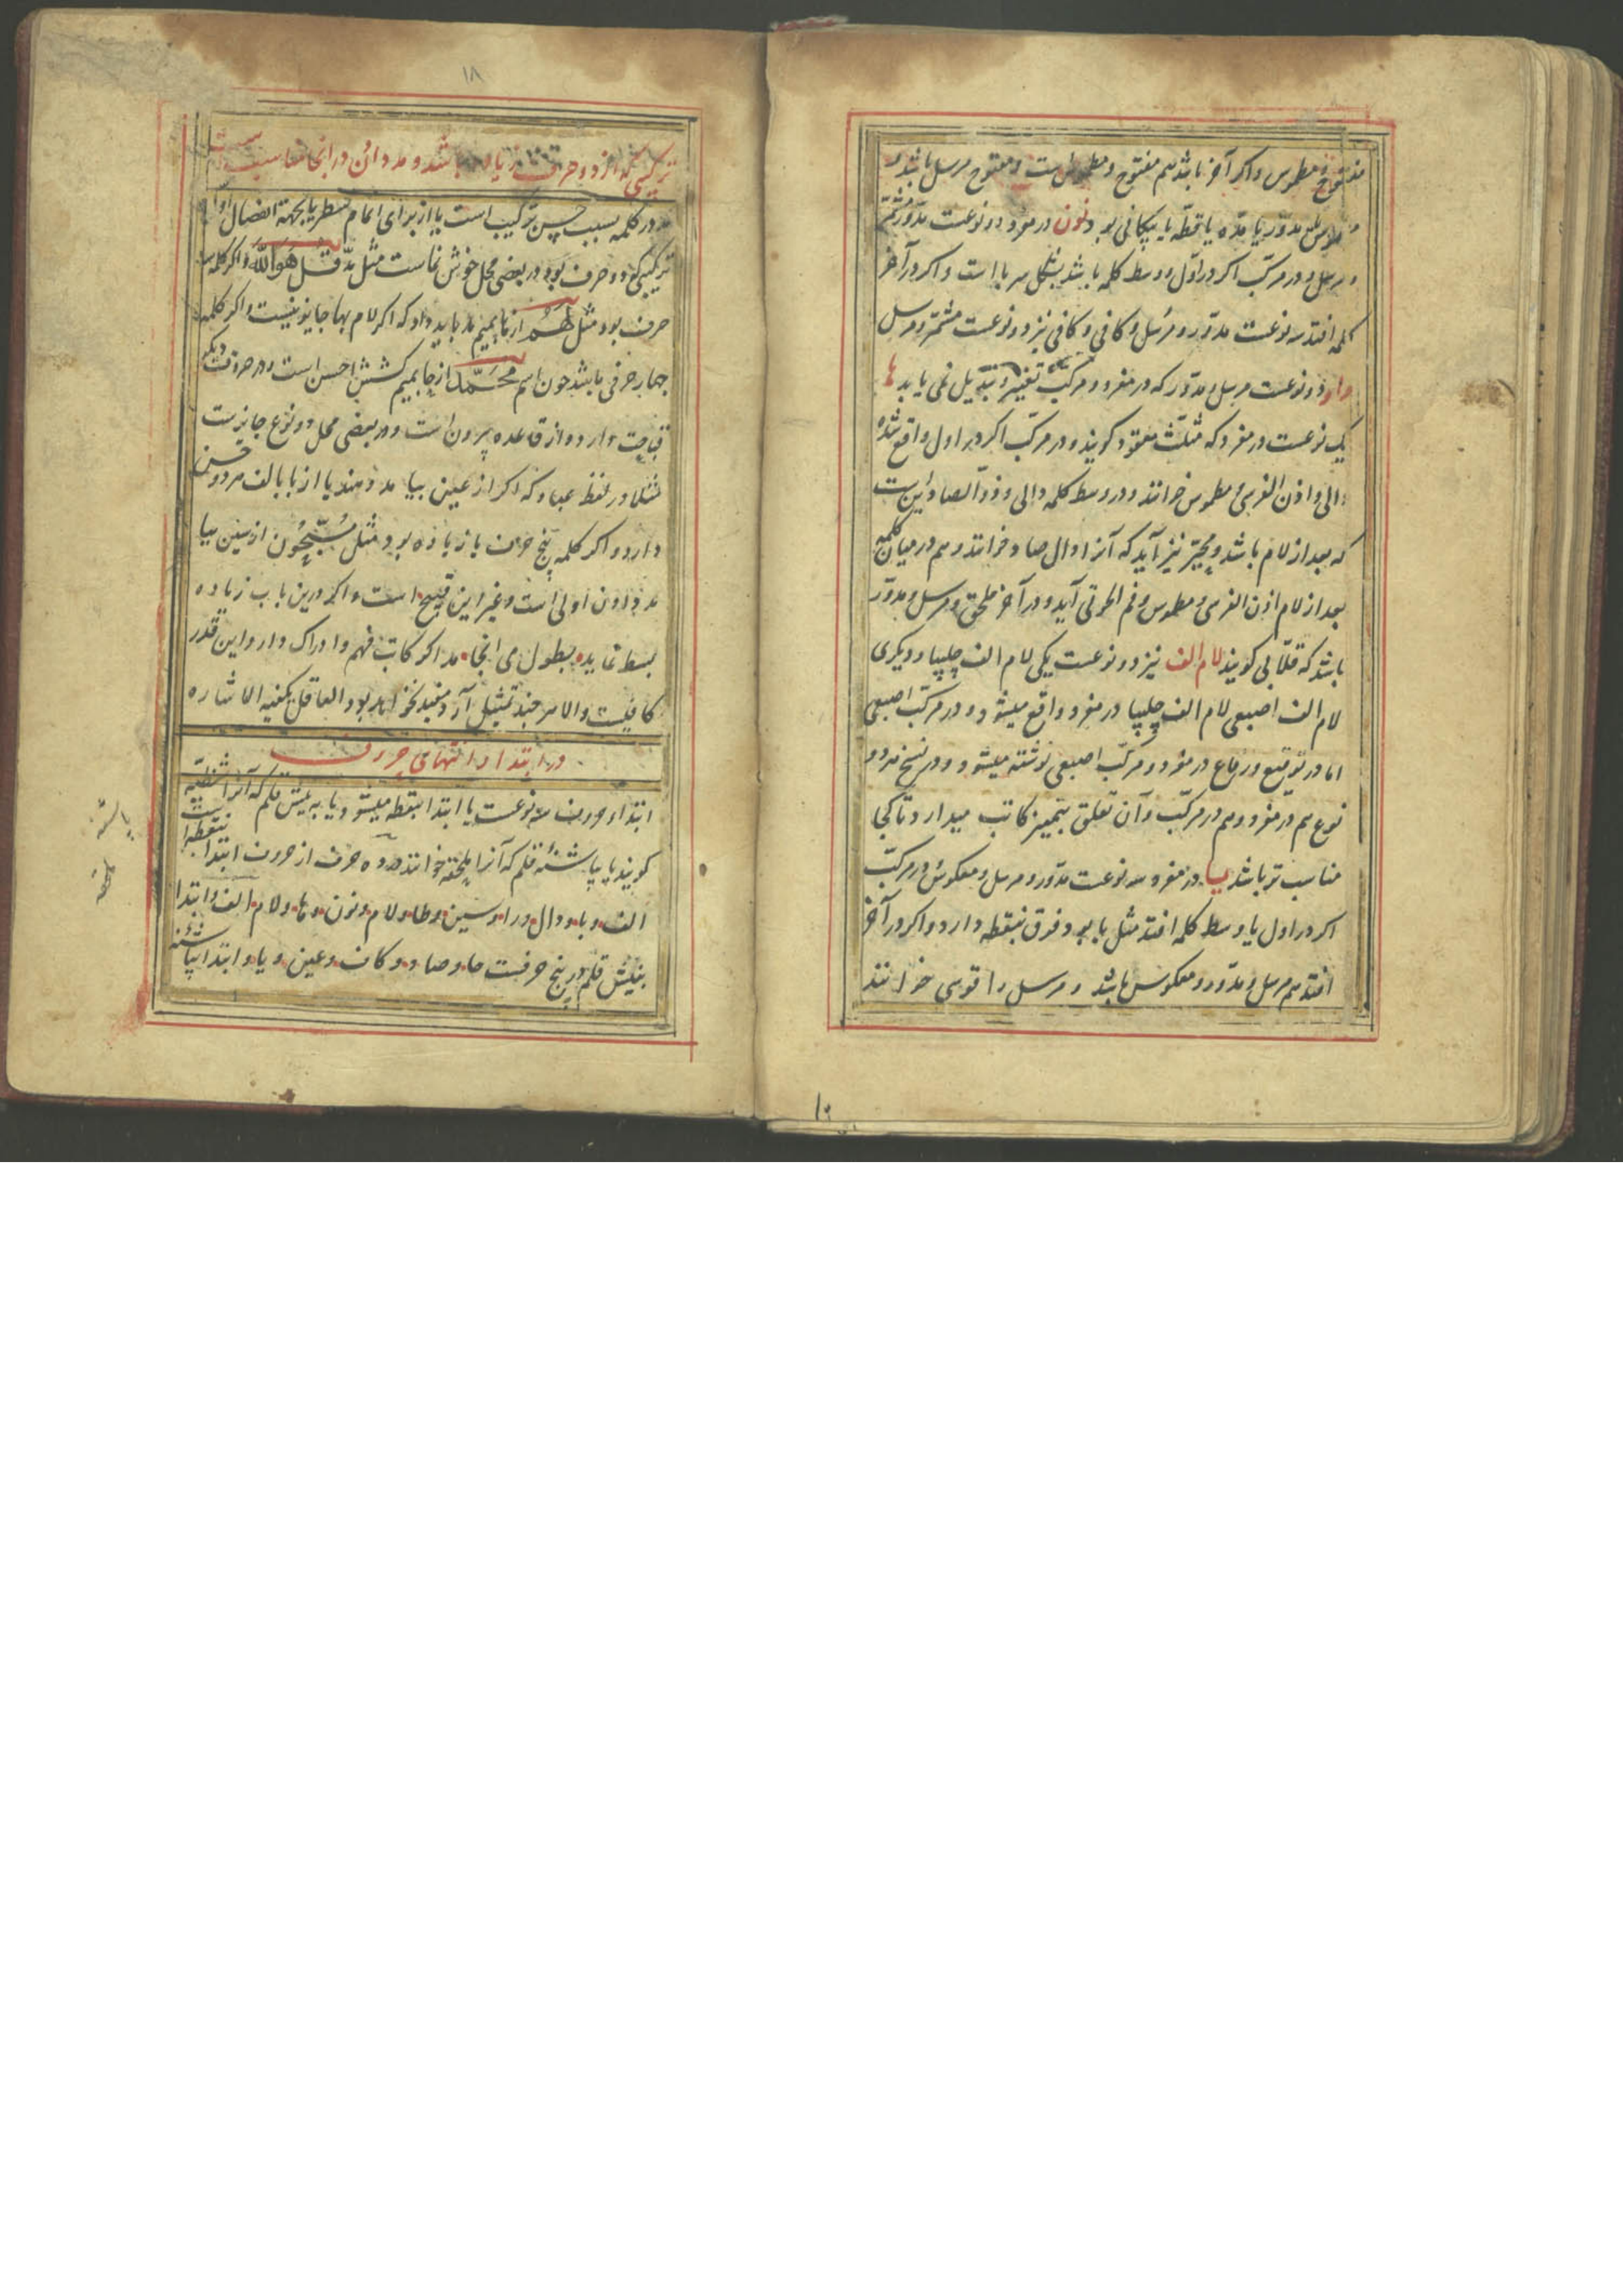 مفتوح و مطموس و اکر آخر باشد هم مفتوح و مطموس است و مفتوح مرسل باشد و
مطموس مدور یا مدّه یا قطّه یا پیکانی بود و نون در مفرد دو نوعست مدوّر مشمّر
و مرسل و در مرکّب اکر در اوّل و وسط کلمه باشد بشکل سر با است و اکر در آخر
کلمه افتد سه نوعست مدوّر و مرسل و کافی و کافی نیز دو نوعست مشمّر و مرسل
واو دو نوعست مرسل و مدوّر که در مفرد و مرکّب تغییر و تبدیل نمی یابد ها
یک نوعست در مفرد که مثلّث معقود کویند و در مرکّب اکر در اول واقع شده
دالی و اذن الفرس و مطموس خوانند و در وسط کلمه دالی و ذو الصادین است
که بعد از لام باشد و مخیّر نیز آید که آنرا دال صاد خوانند و هم در میان کلمه
بعد از لام اذن الفرس و مطموس و فم الحوتی آید و در آخر ملحق و مرسل و مدوّر
باشد که قلّابی کویند لام الف نیز دو نوعست یکی لام الف چلیپا و دیکری
لام الف اصبعی لام الف چلیپا در مفرد واقع میشود و در مرکّب اصبعی
اما در توقیع و رقاع در مفرد و مرکّب اصبعی نوشته میشود و در نسخ هر دو
نوع هم در مفرد و هم در مرکّب و آن تعلق بتمییز کاتب میدارد تا کجا
مناسب تر باشد یا در مفرد سه نوعست مدوّر و مرسل و معکوس در مرکّب
اکر در اول یا وسط کلمه افتد مثل با بود و فرق بنقطه دارد و اکر در آخر
افتد هم مرسل و مدوّر و معکوس باشد و مرسل را قوسی خوانند
۱۸
ترکیبی که از دو حرف زیاده باشد و مد دادن در انجا مناسبست
مد در کلمه بسبب حسن ترکیب است یا از برای اتمام سطر یا بجهة انفصال
ترکیبی که دو حرف بود در بعضی محل خوش نماست مثل مدّ قل هو الله و اکر کلمه سه
حرف بود مثل لهم از ها بمیم مد باید داد که اکر لام بها جایز نیست و اکر کلمه
چهار حرفی باشد چون اسم محمّد از حا بمیم کشش احسن است و در حروف دیکر
قباحت دارد و از قاعده بیرون است و در بعضی محل دو نوع جایزست
مثلا در لفظ عباد که اکر از عین ببا مد دهند یا از با بالف هر دو حسن
دارد و اکر کلمه پنج حرف یا زیاده بود مثل مسبّحون از سین ببا
مد دادن اولی است و غیر این قبیح است و اکر درین باب زیاده
بسط نماید بطول می انجامد اکر کاتب فهم و ادراک دارد این قدر
کافیست و الا هر چند تمثیل آرد مفید نخواهد بود العاقل یکفیه الاشاره
در ابتدا و انتهای حروف
ابتداء حروف سه نوعست یا ابتدا بنقطه میشود یا به نیش قلم که آنرا شظیّه
کویند یا بپاشنه قلم که آنرا ملحقه خوانند ده حرف از حروف ابتدا بنقطه است
الف و با و دال و را و سین و طا و لام و نون و ها و لام الف و ابتدا
بنیش قلم در پنج حرفست حا و صاد و کاف و عین و یا و ابتدا بپاشنه